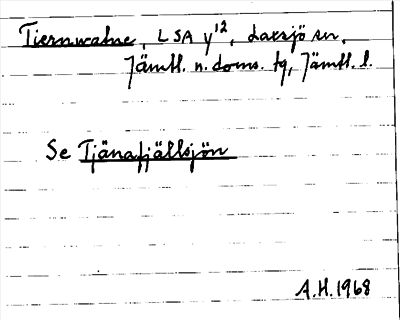 Tiernwatne, LSA y¹², Laxsjö sn,
Jämtl. n. doms. tg, Jämtl. l.
Se Tjänafjällsjön
A.H. 1968